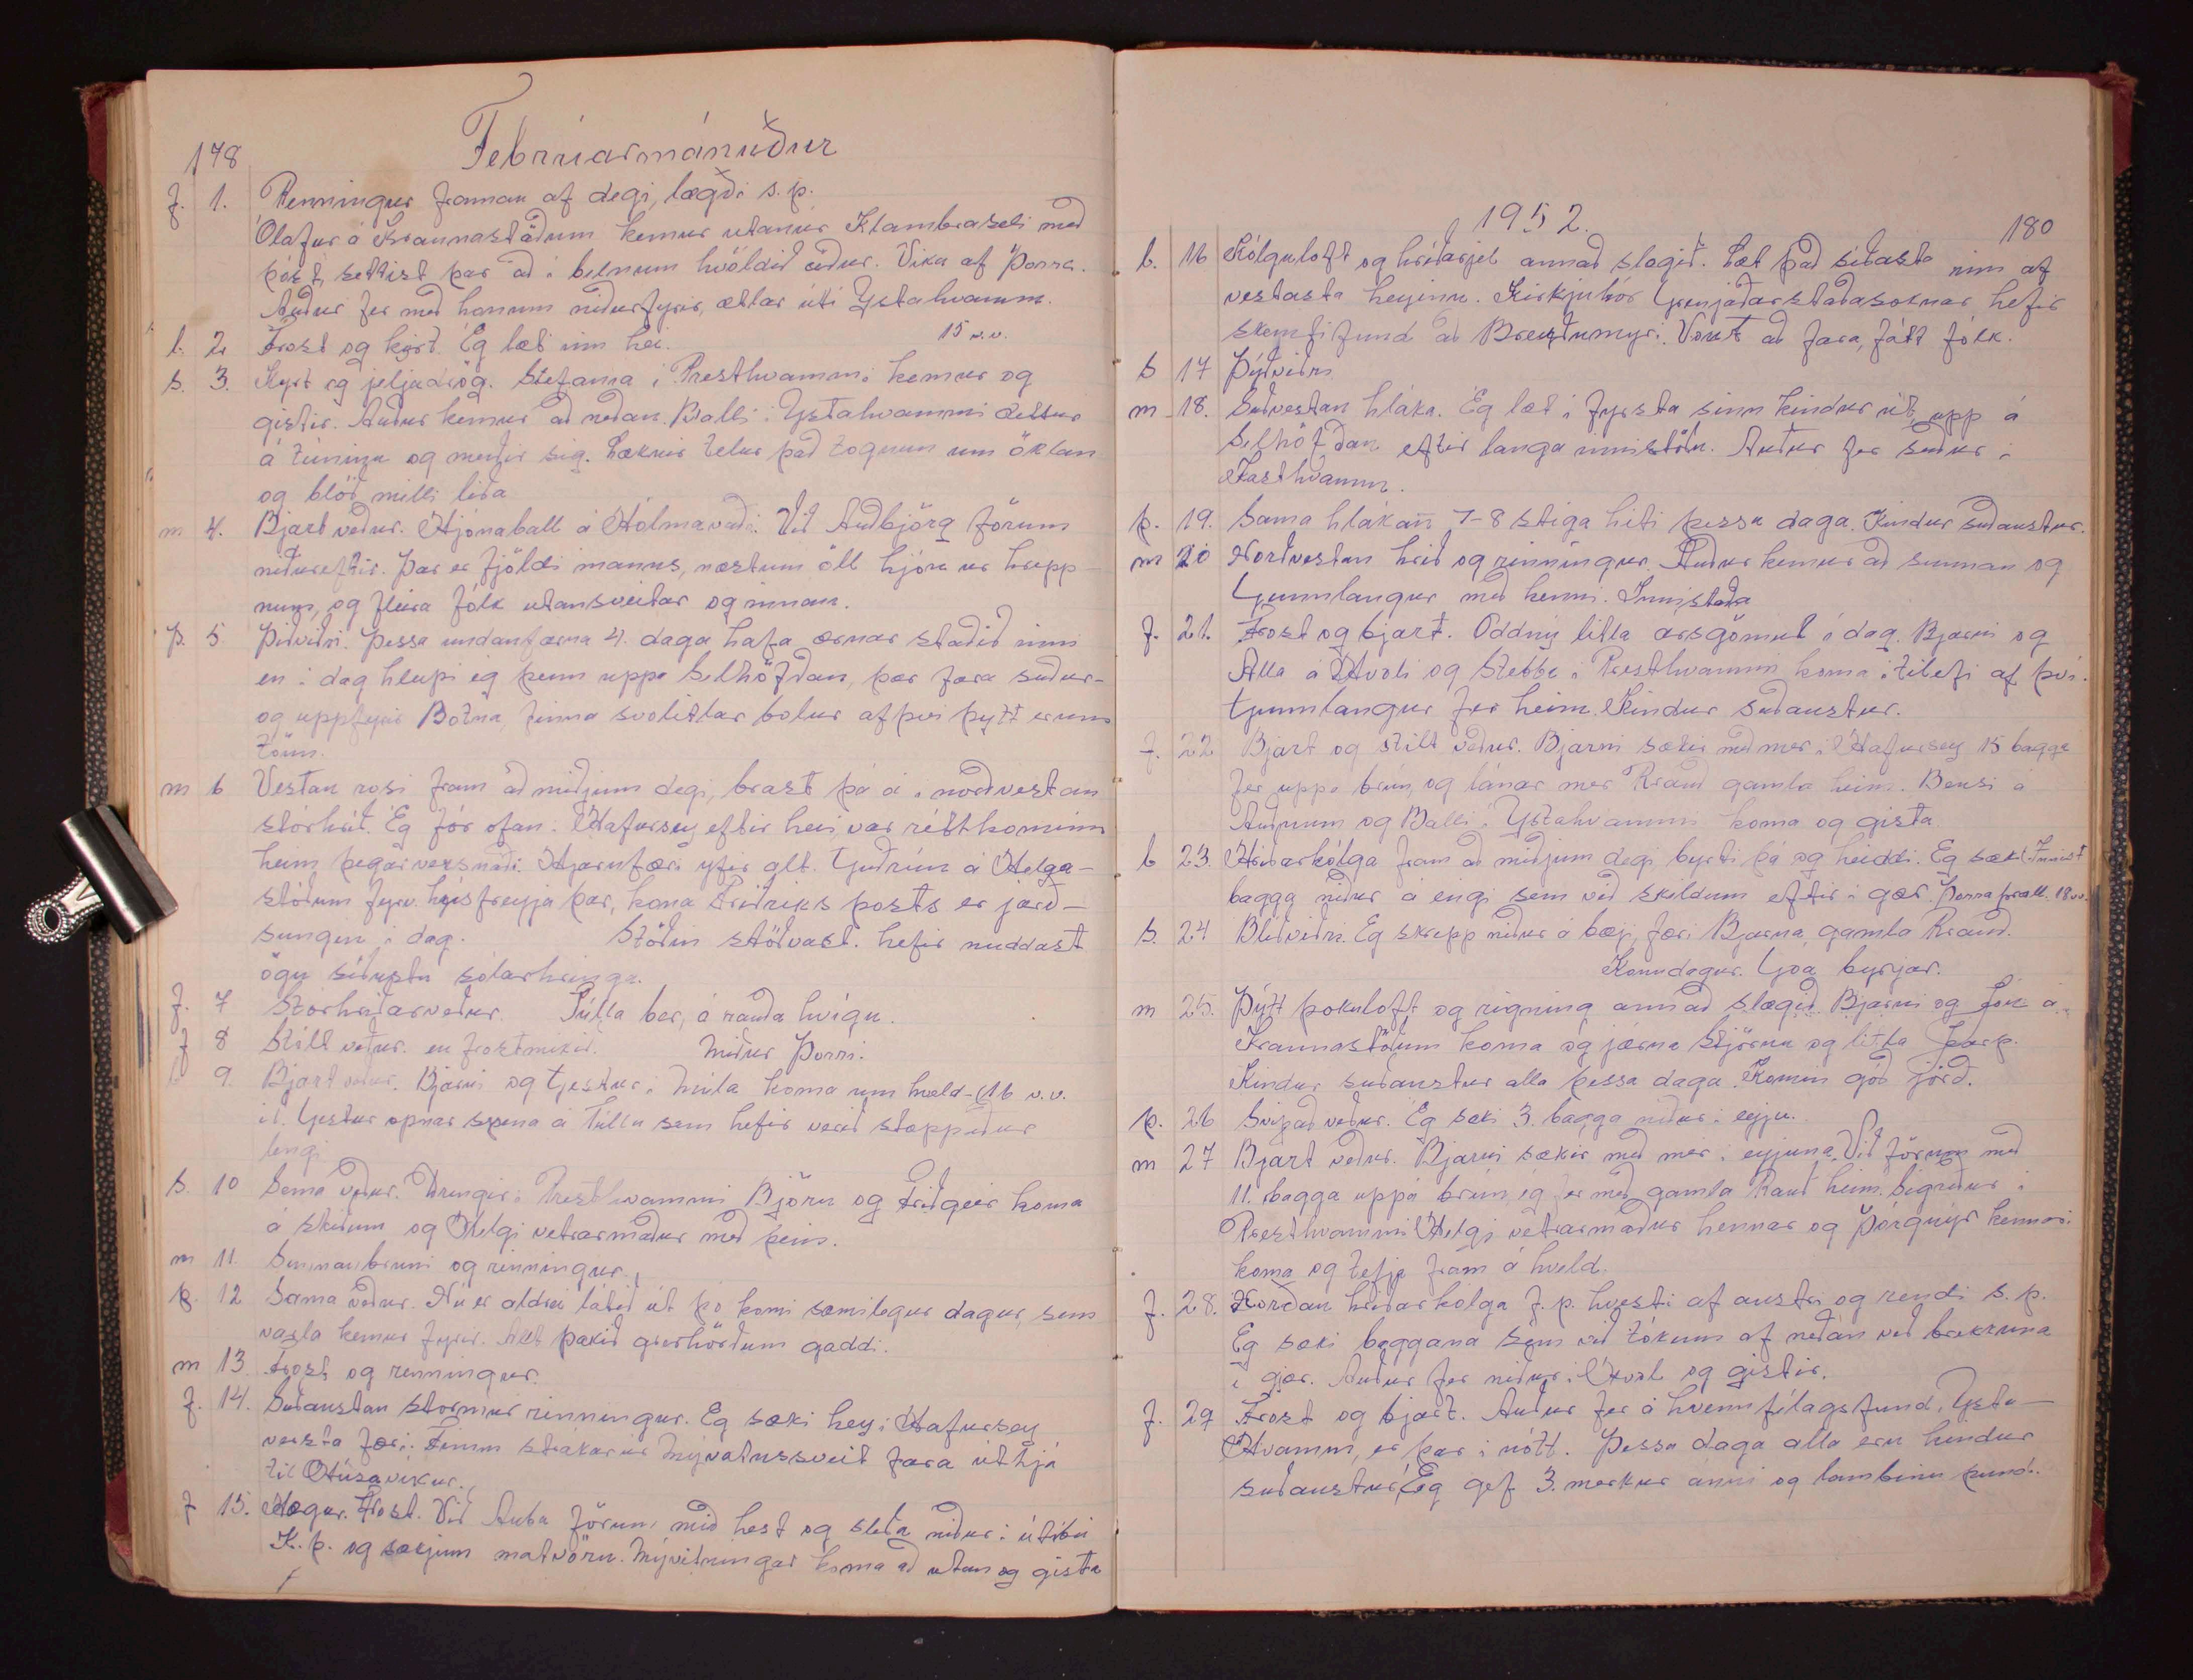 178
Febrúarmánuður
f. 1. Renningur framan af degi, lægði s.p.
Ólafur á Kraunastöðum kemur utanúr Klambraseli með
póst, settist þar að í belnum kvöldið áður. Vika af Þorra.
Auður fer með honum niðurfyrir, ætlar útí Ystahvamm.
l. 2 Frost og kyrt. Ég læt inn hei. 15 v.v.
s. 3. Kyrt og jeljadrög. Stefanía í Presthvammi kemur og
gistir. Auður kemur að neðan. Balli í Ystahvammi dettur
á túninu og meiðir sig. Læknir telur það tognun um öklan
og blóð milli liða
m 4. Bjart veður. Hjónaball á Hólmavaði. Við Auðbjörg förum
niðureftir. Þar er fjöldi manns, næstum öll hjón úr hrepp-
num, og fleira fólk utansveitar og innan.
þ. 5 Þíðviðri. Þessa undanfarna 4. daga hafa ærnar staðið inni
en í dag hleypi ég þeim uppá Selhöfðan, þær fara suður-
og uppfyrir Botna, finna svolitlar bolur af því þytt er um
tóin.
m 6 Vestan rosi fram að miðjum degi, brast þá á norðvestan
stórhríð. Ég fór ofan í Hafursey eftir hei, var rétt kominn
heim þegar versnaði. Hjarnfæri yfir alt. Guðrún á Helga-
stöðum fyrv. húsfreyja þar, kona Friðriks pósts er jarð-
sungin í dag. Stöðin stöðvast. hefir nuddast
ögn síðustu sólarhringa.
f. 7 Stórhríðarveður. Túlla ber, á rauða kvígu.
f 8 Stilt veður en frostmikið. Miður Þorri.
l 9. Bjart veður. Bjarni og Gestur í Múla koma um kveld- (16 v.v.
ið. Gestur opnar spena á Túllu sem hefir verið stoppaður
lengi
s. 10 Sama veður. Drengir í Presthvammi Björn og Friðgeir koma
á skíðum og Helgi vetrarmaður með þeim.
m 11. Sunnanbruni og rinningur.
þ. 12 Sama veður. Nú er aldrei látið út þó komi sæmilegur dagur, sem
varla kemur fyrir. Alt þakið grerhörðum gaddi.
m 13 Frost og renningur.
f. 14. Suðaustan stormur rinningur. Ég sæki hey í Hafursey
versta færi. Fimm strákar úr Mývatnssveit fara úthjá
til Húsavíkur.
f 15. Hægur. Frost. Við Auba förum með hest og sleða niður í útibú
K.þ. og sækjum matvöru. Mývitningar koma að utan og gista
1952.
180
l. 16 Kólguloft og hríðarjel annað slagið. Læt það síðasta inn af
vestasta heyinu. Kirkjukór Grenjaðarstaðasóknar hefir
skemtifund að Breiðumýri. Vont að fara, fátt fólk.
s 17 Þýðviðri
m 18. Suðvestan hláka. Ég læt í fyrsta sinn kindur út, upp á
Selhöfðan eftir langa innistöðu. Auður fer suður í
Kasthvamm.
þ. 19. Sama hlákan 7-8 stiga hiti þessa daga. Kindur suðaustur.
m 20 Norðvestan hríð og rinningur. Auður kemur að sunnan og
Gunnlaugur með henni. Innistaða
f. 21. Frost og bjart. Oddný litla ársgömul í dag. Bjarni og
Alla á Hvoli og Stebba í Presthvammi koma í tilefi af því.
Gunnlaugur fer heim. Kindur suðaustur.
f. 22 Bjart og stilt veður. Bjarni sækir með mér í Hafursey 15 bagga
fer uppá brún, og lánar mér Rauð gamla heim. Bensi á
Auðnum og Balli í Ystahvammi koma og gista
l 23. Hríðarkólga fram að miðjum degi, byrti þá og heiddi. Ég sæki Innist
bagga niður á engi sem við skildum eftir í gær. Þorra þræll. 18 vv.
s. 24 Blíðviðri. Ég skrepp niður á bæji, færi Bjarna, gamla Rauð.
Konudagur. Góa byrjar.
m 25. Þýtt þokuloft og rigning annað slagið. Bjarni og Jón á
Kraunastöðum koma og járna Stjörnu og litla Jarp.
Kindur suðaustur alla þessa daga. Komin góð jörð.
þ. 26 Svipað veður. Ég sæki 3. bagga niður í eyju.
m 27 Bjart veður. Bjarni sækir með mér í eyjuna. Við förum með
11. bagga uppá brún, ég fer með gamla Rauð heim. Sigríður í
Presthvammi Helgi vetrarmaður hennar og Þórgnýr kennari
koma og tefja fram á kveld.
f. 28. Norðan hríðarkólga f.p. hvesti af austri og rendi s.p.
Ég sæki baggana sem við tókum af neðan við brekkuna
í gær. Auður fer niður í Hvol og gistir.
f. 29 Frost og bjart. Auður fer á kvennfélagsfund, Ysta-
Hvamm, er þar í nótt. Þessa daga alla eru kindur
suðaustur. Ég gef 3. merkur ánni og lambinu pund.